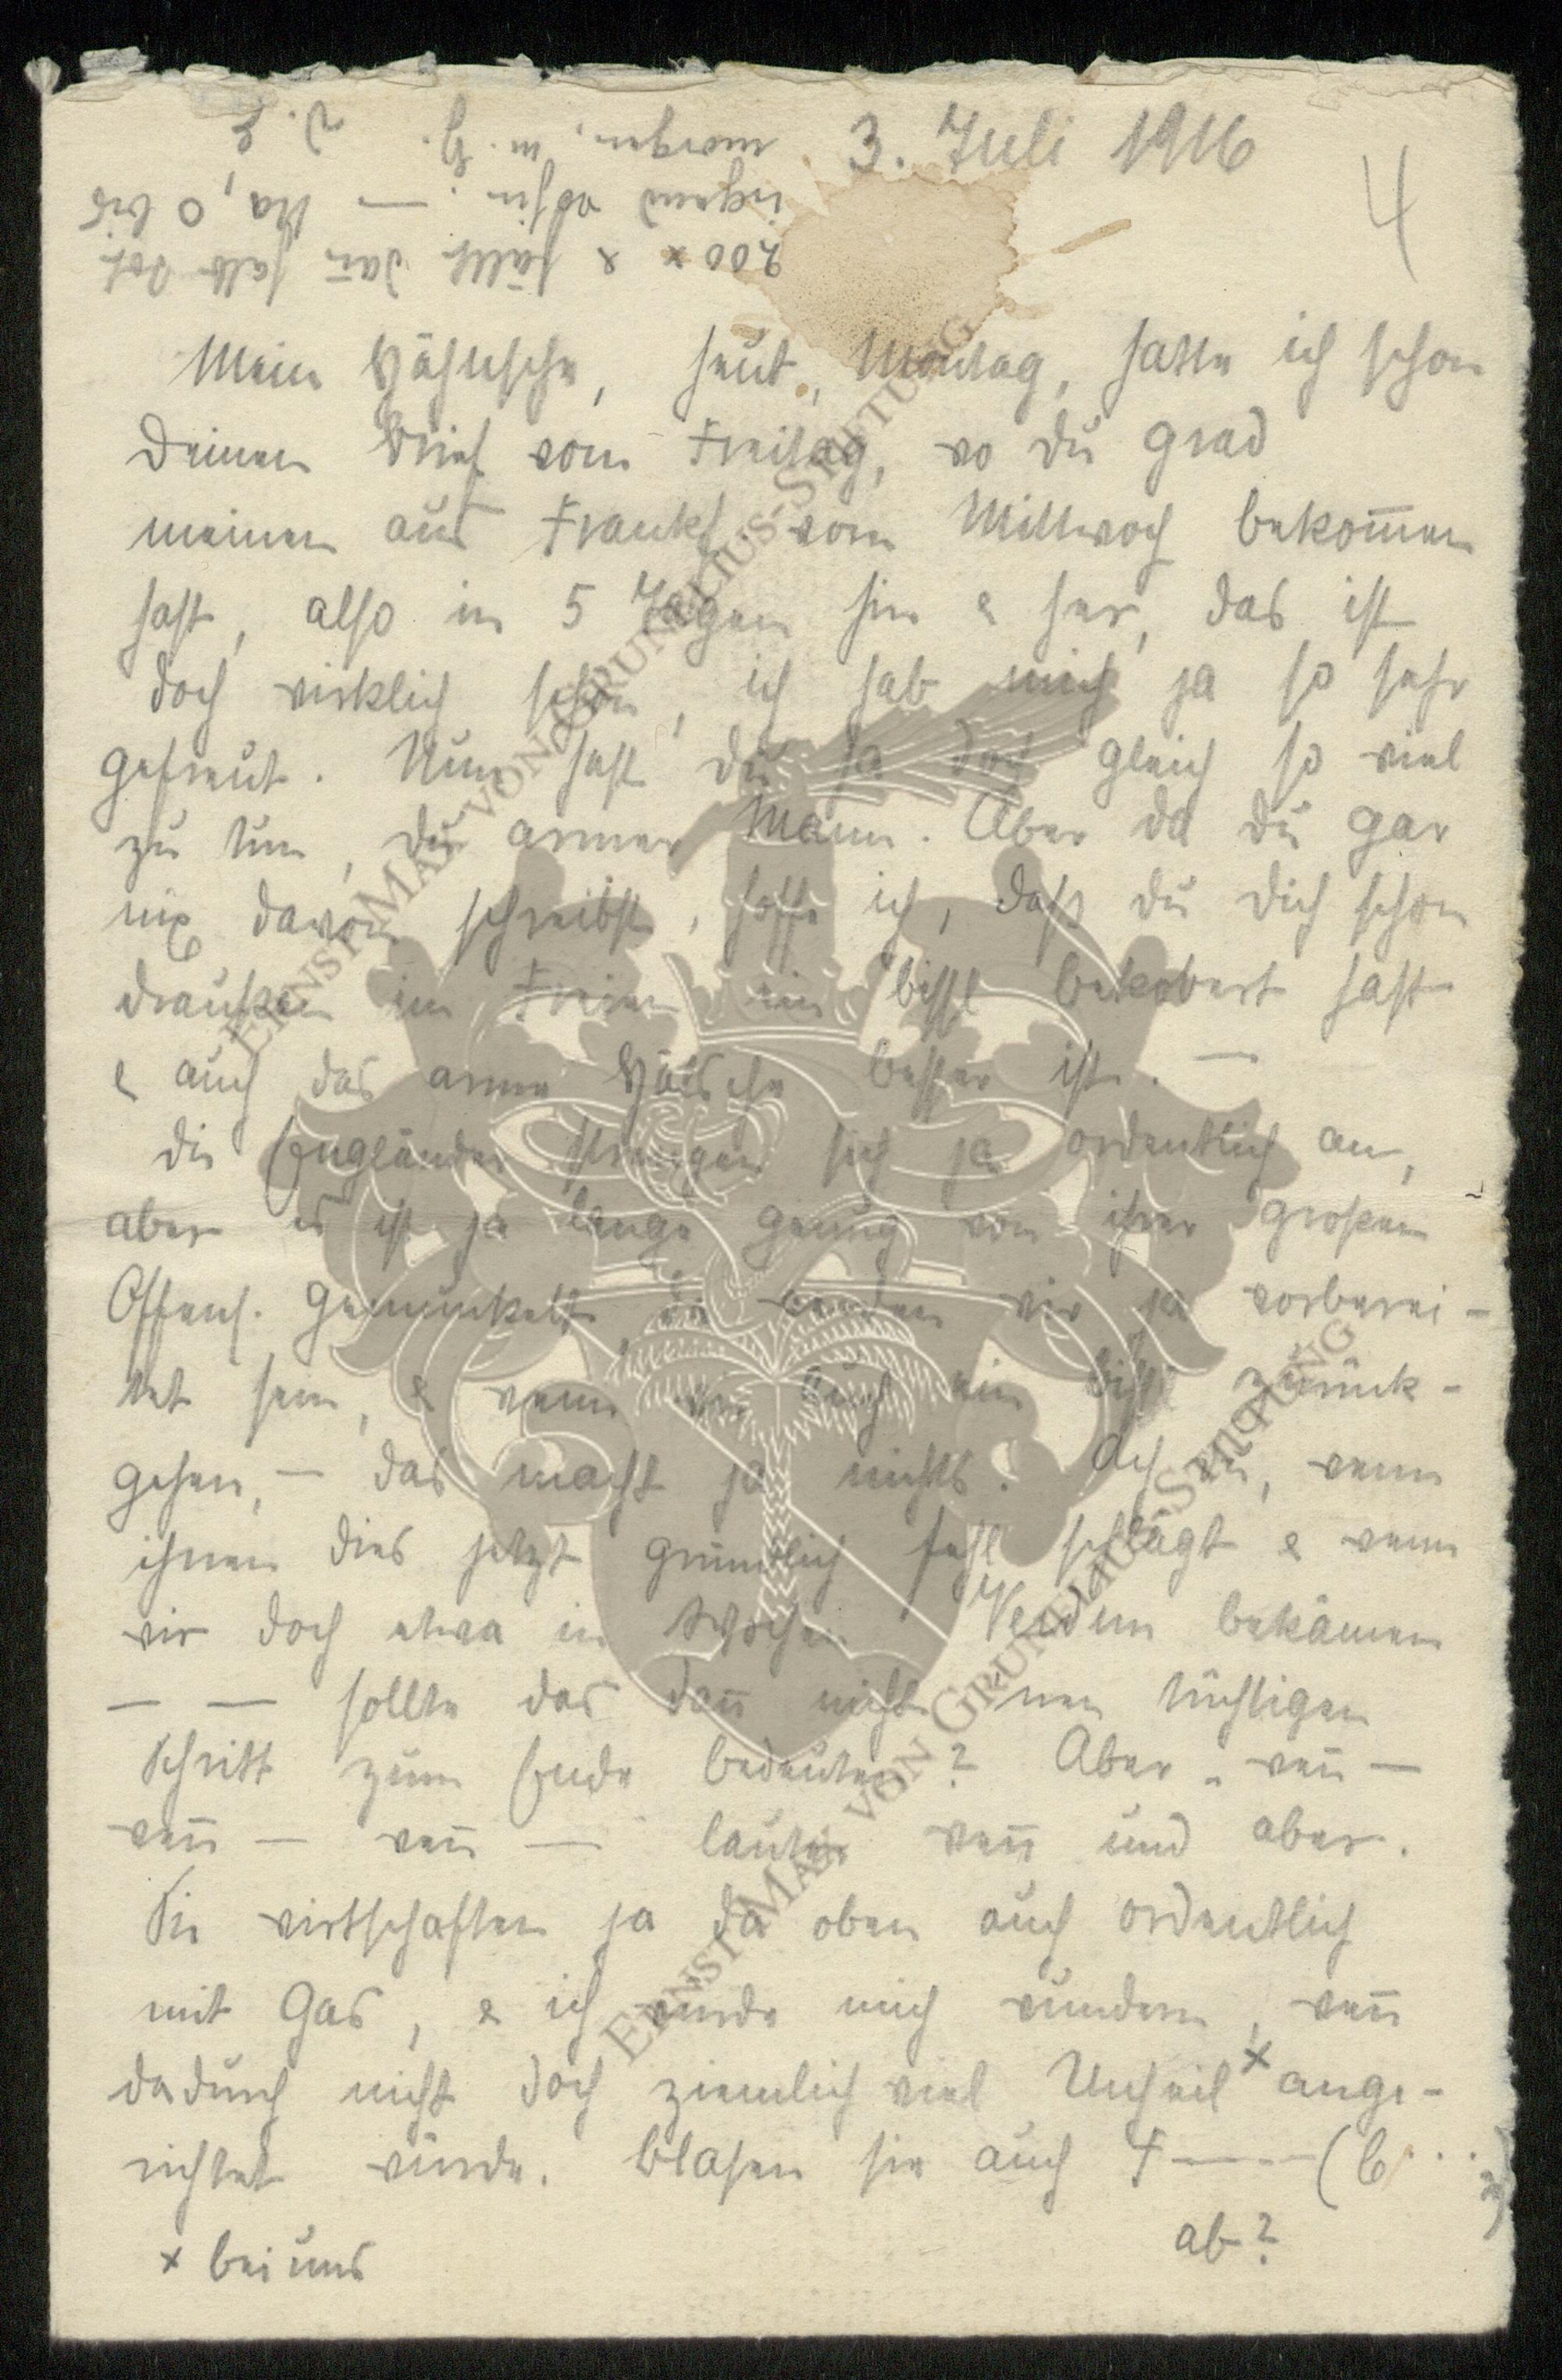 3. Juli 1916
4
200 x x fällt dann halb tot
irgend wohin. — Na, o bis
morgen, m. G. D. E
Mein Hähnsche, heut, Montag, hatte ich schon
Deinen Brief vom Freitag, wo Du grad
meinen aus Frankf. vom Mittwoch bekom̄en
hast, also in 5 Tagen hin & her, das ist
doch wirklich schön, ich hab mich ja so sehr
gefreut. Nun hast Du ja doch gleich so viel
zu tun, Du armer Mann. Aber da Du gar
nix davon schreibst, hoffe ich, daß Du Dich schon
draußen im Freien ein bissl bekobert hast
& auch das arme besser ist. —
Die Engländer strengen sich ja ordentlich an,
aber es ist ja lange genug von ihrer großen
Offens. gemunkelt, da werden wir ja vorberei-
tet sein, & wenn wir auch ein bissl zurück-
gehen, — das macht ja nichts. Ach Du, wenn
ihnen dies jetzt gründlich fehl schlägt & wenn
wir doch etwa in Wochen Verdun bekämen
— — sollte das dan̄ nicht 'nen tüchtigen
Schritt zum Ende bedeuten? Aber - wen̄ —
wen̄ — wen̄ — lauter wen̄ und aber.
Sie wirtschaften ja da oben auch ordentlich
mit Gas, & ich würde mich wundern, wen̄
dadurch nicht doch ziemlich viel Unheil x ange-
richtet würde. Blasen sie auch F---- (b...
ab?
x bei uns